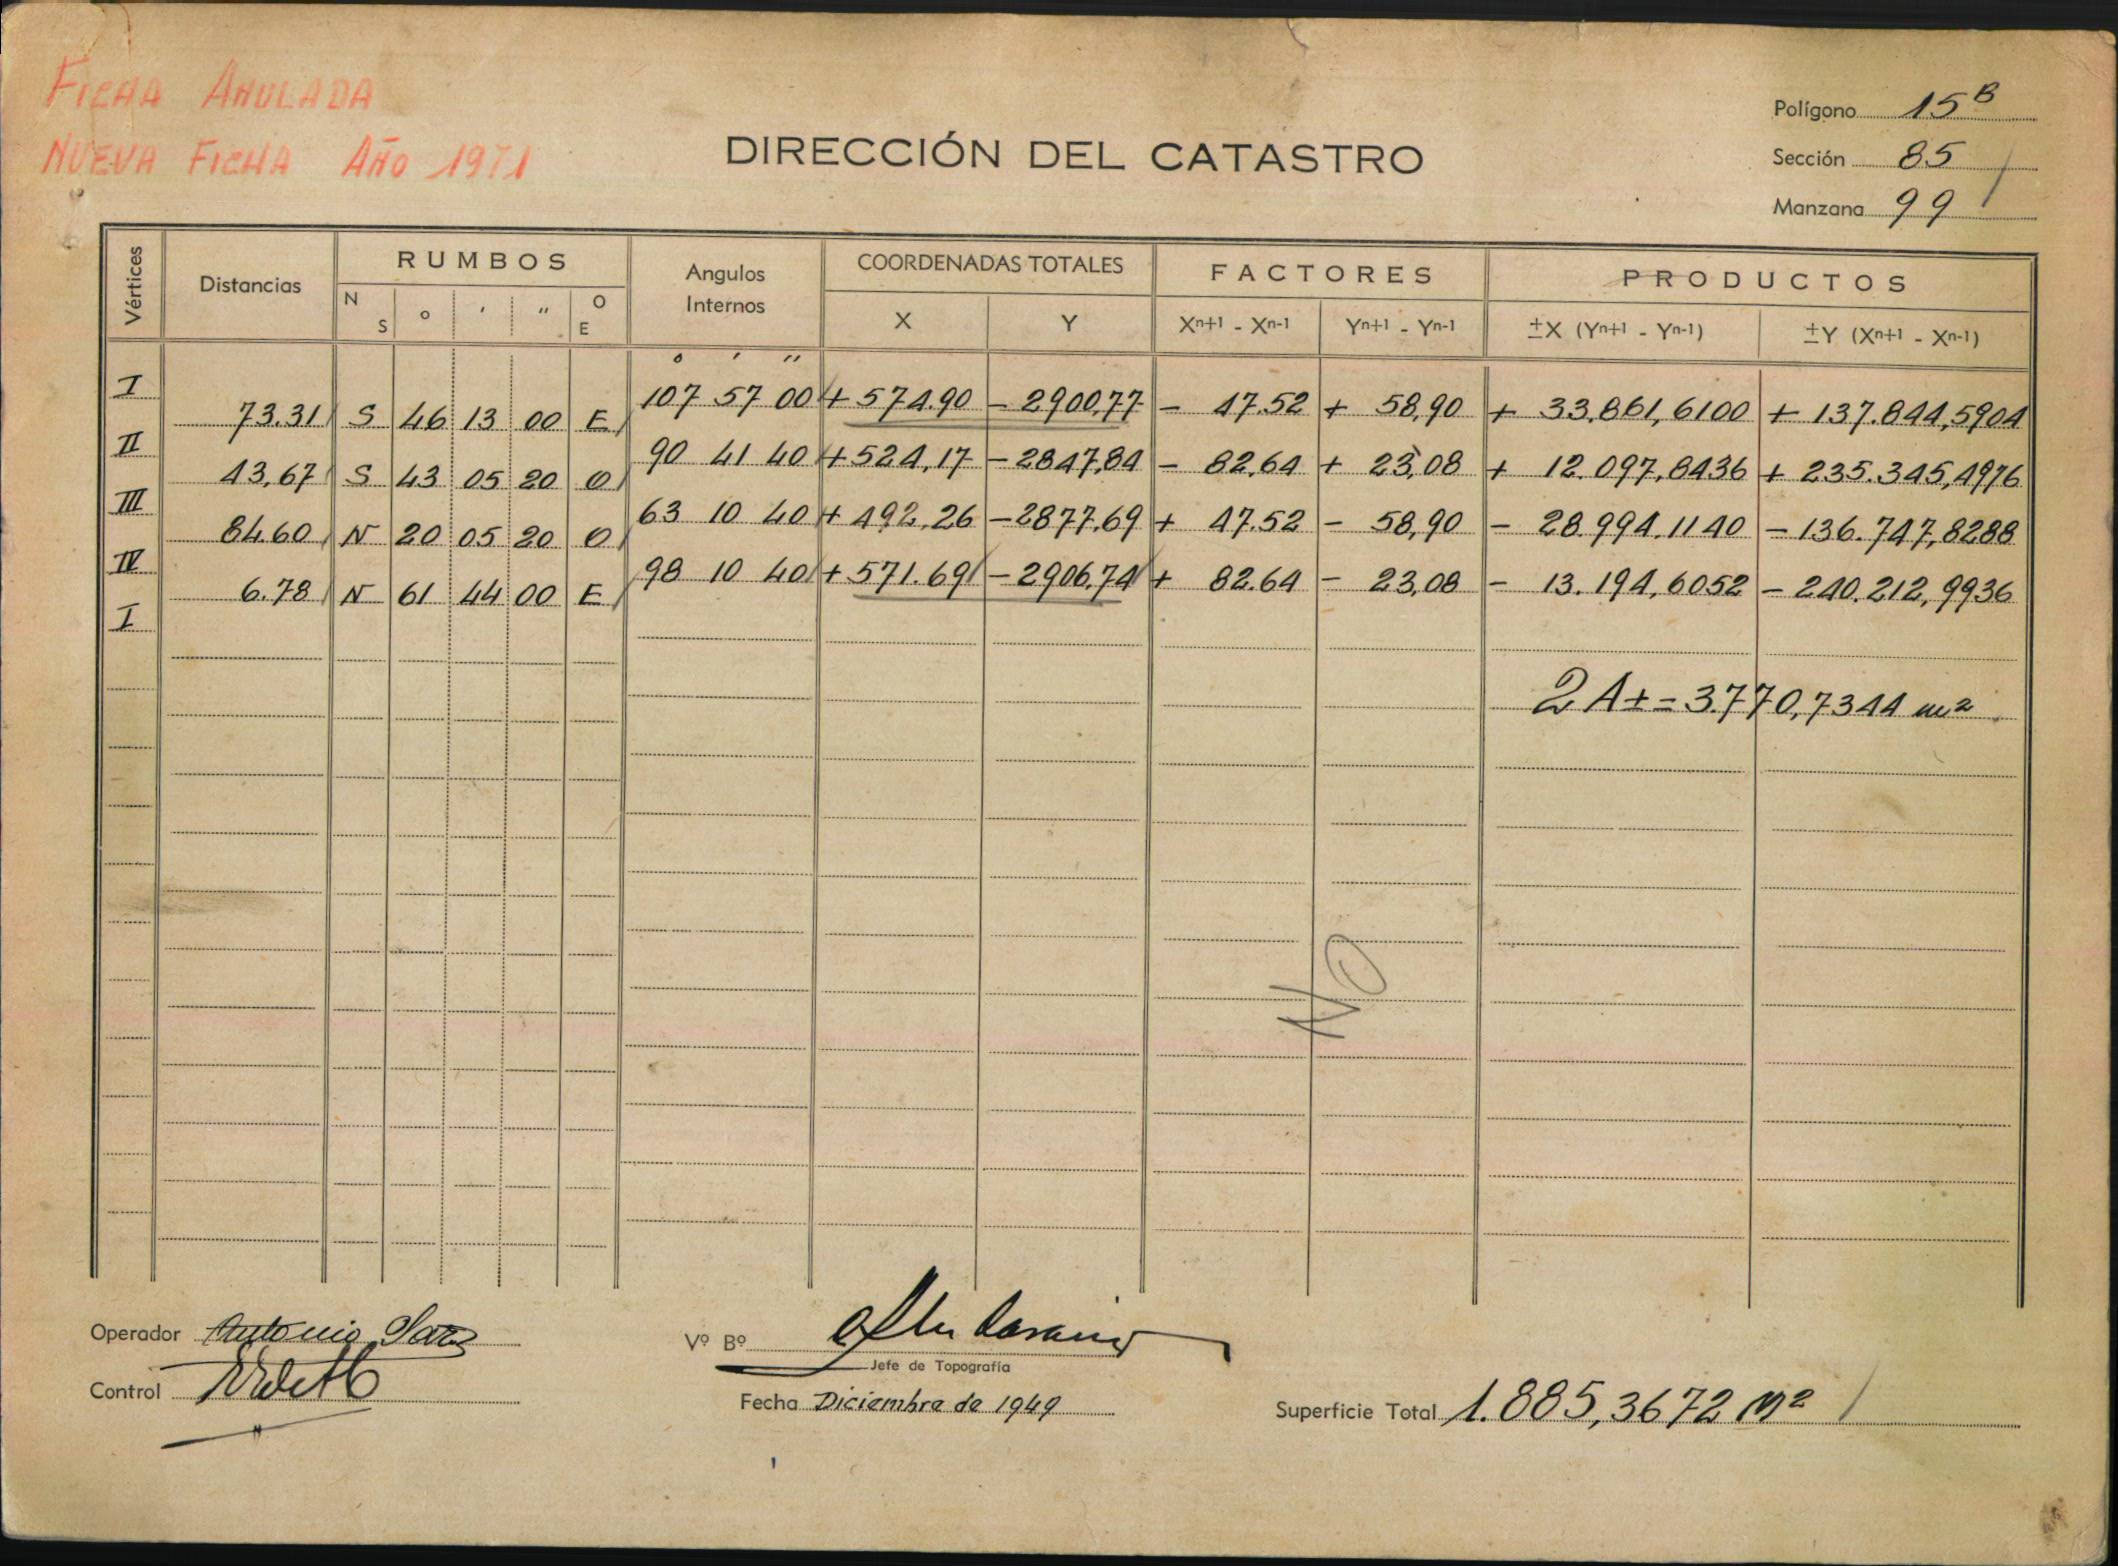 FICHA ANULADA
NUEVA FICHA AÑO 1971
DIRECCIÓN DEL CATASTRO
Polígono 15 B
Sección 85
Manzana 99
Vértices Distancias RUMBOS Angulos Internos COORDENADAS TOTALES FACTORES PRODUCTOS
N S o ' " O E X Y Xn+1 - Xn-1 Yn+1 - Yn-1 ±X (Yn+1 - Yn-1) ±Y (Xn+1 - Xn-1)
o ' "
I 107 57 00 + 574.90 - 2900,77 - 47.52 + 58,90 + 33.861,6100 + 137.844,5904
73.31 S 46 13 00 E
II 90 41 40 + 524,17 - 2847,84 - 82,64 + 23,08 + 12.097,8436 + 235.345,4976
43,67 S 43 05 20 O
III 63 10 40 + 492,26 - 2877,69 + 47.52 - 58,90 - 28.994,1140 - 136.747,8288
84.60 N 20 05 20 O
IV 98 10 40 + 571.69 - 2906,74 + 82.64 - 23,08 - 13.194,6052 - 240.212,9936
6.78 N 61 44 00 E
I
2A± = 3.770,7344 m2
NO
Operador Antonio
Vº Bº
Jefe de Topografía
Control
Fecha Diciembre de 1949
Superficie Total 1.885,3672 M2